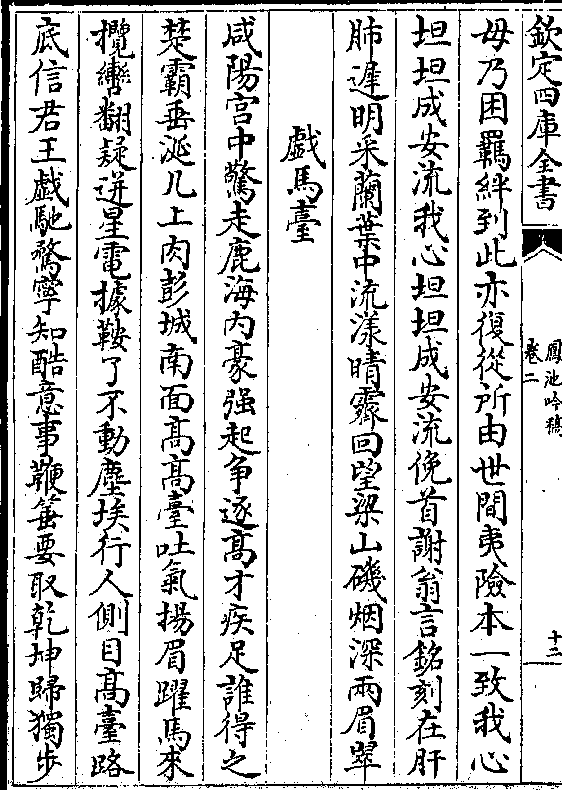 欽定四庫全書
鳳池吟稿
卷二
十二
毋乃困羈絆到此亦復從所由世間夷險本一致我心
坦坦成安流我心坦坦成安流俛首謝翁言銘刻在肝
肺遲明采蘭葉中流漾晴霽回望梁山磯烟深兩眉翠
戲馬臺
咸陽宫中驚走鹿海内豪强起爭逐髙才疾足誰得之
楚霸垂涎几上肉彭城南面髙髙臺吐氣揚眉躍馬來
攬轡翻疑迸星電據鞍了不動塵埃行人側目髙臺路
底信君王戯馳騖寧知酷意事鞭箠要取乾坤歸獨步